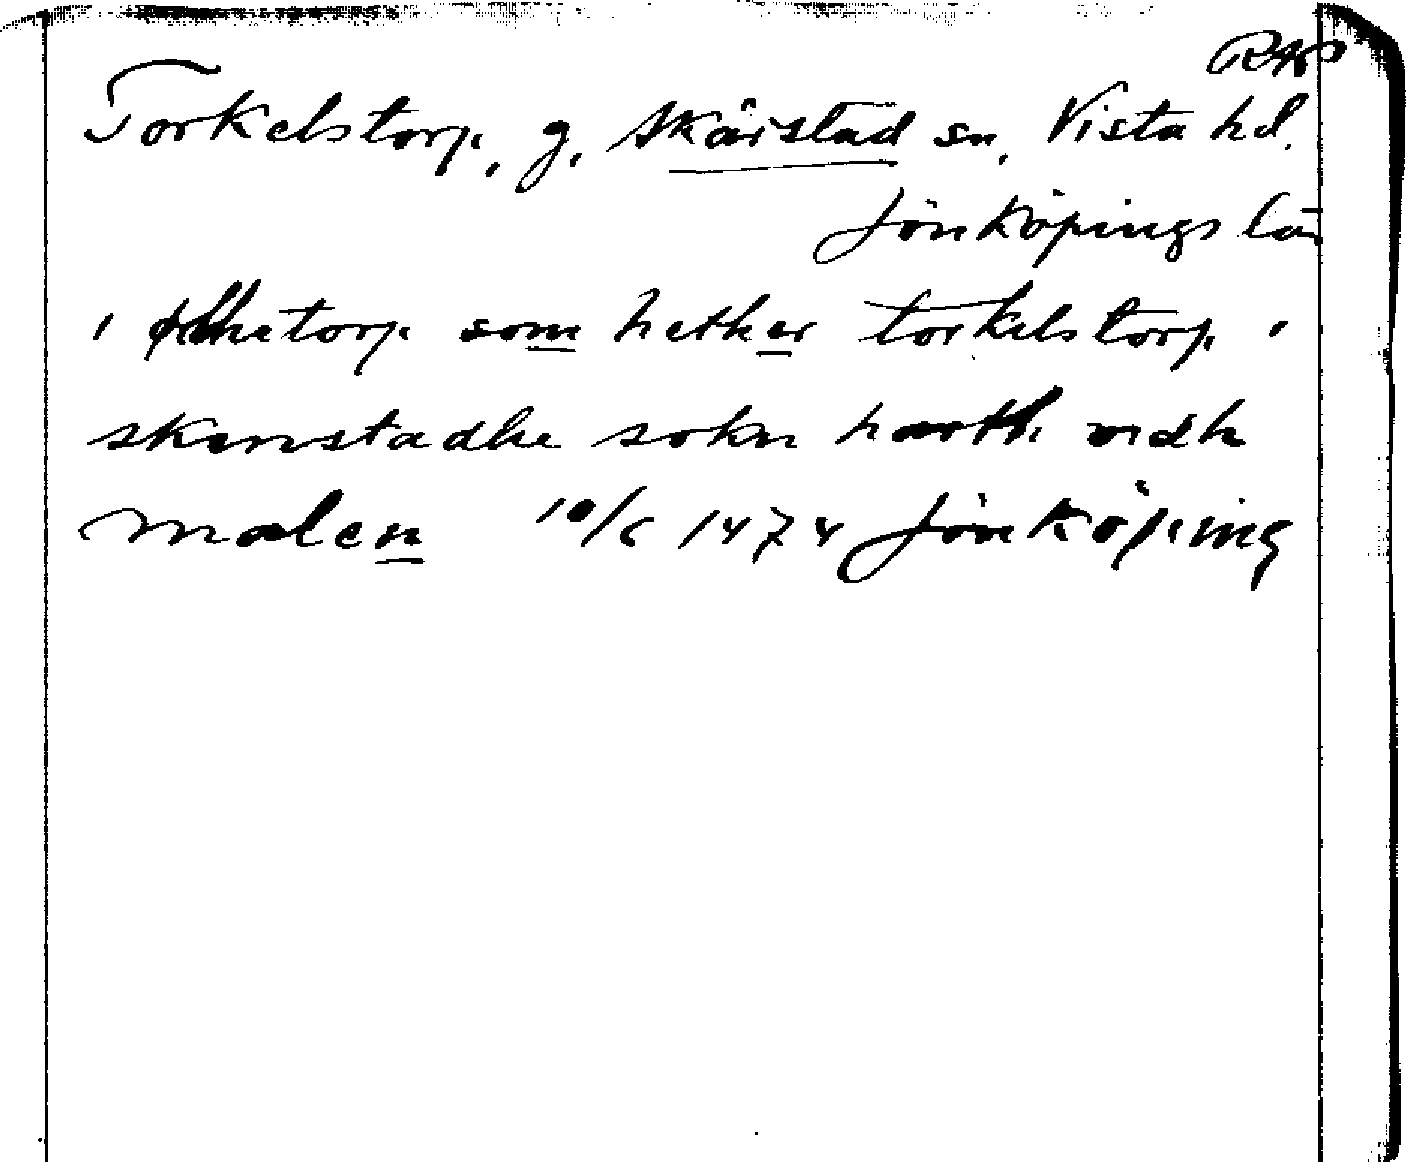 RAp
Torkelstorp, g, Skärstad sn, Vista hd.
Jönköpings län
i øthetorp som hether torkelstorp i
skerstadhe sokn hartt vidh
malen 10/6 1474 Jönköping